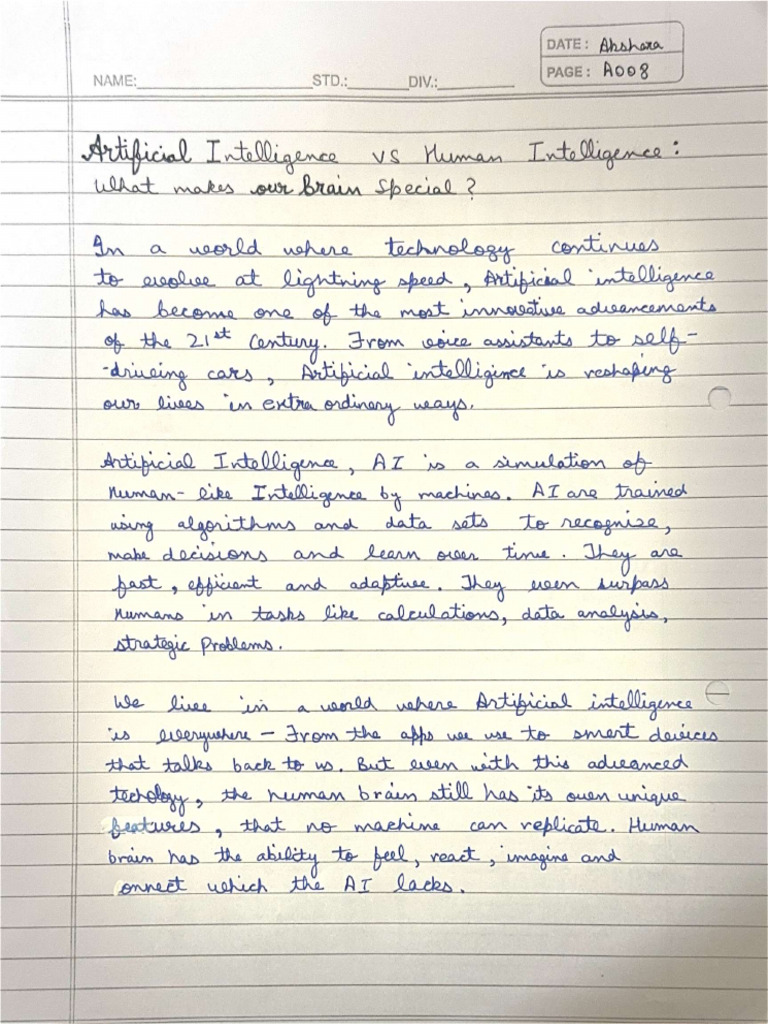 DATE: Akshara
NAME: STD.: DIV.: PAGE: A008
Artificial Intelligence vs Human Intelligence:
What makes our Brain Special?
In a world where technology continues
to evolve at lightning speed, Artificial intelligence
has become one of the most innovative advancements
of the 21st Century. From voice assistants to self-
-driving cars, Artificial intelligence is reshaping
our lives in extra ordinary ways.
Artificial Intelligence, AI is a simulation of
Human-like Intelligence by machines. AI are trained
using algorithms and data sets to recognise,
make decisions and learn over time. They are
fast, efficient and adaptive. They even surpass
Humans in tasks like calculations, data analysis,
strategic Problems.
We live in a world where Artificial intelligence
is everywhere - From the apps we use to smart devices
that talks back to us. But even with this advanced
techology, the human brain still has its own unique
features, that no machine can replicate. Human
brain has the ability to feel, react, imagine and
onnect which the AI lacks.